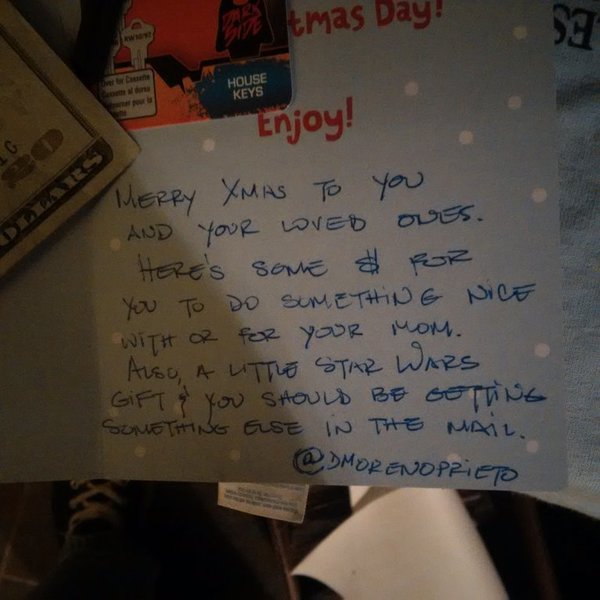 DARK
SIDE
tmas Day!
HOUSE
KEYS
20
DOLLARS
Enjoy!
MERRY XMAS TO YOU
AND YOUR LOVED ONES.
HERE'S SOME $ FOR
YOU TO DO SOMETHING NICE
WITH OR FOR YOUR MOM.
ALSO, A LITTLE STAR WARS
GIFT & YOU SHOULD BE GETTING
SOMETHING ELSE IN THE MAIL.
@DMORENOPRIETO